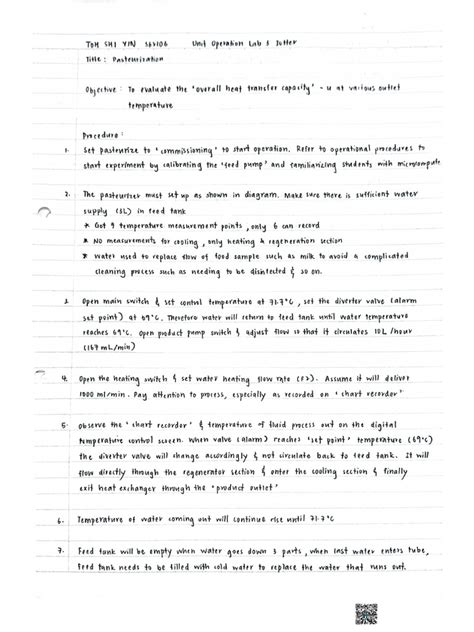 TOH SHI YIN 365106 Unit Operation Lab 3 Jotter
Title : Pasteurization
Objective : To evaluate the "overall heat transfer capacity" - u at various outlet
temperature
Procedure :
1. Set pasteurize to "commissioning" to start operation. Refer to operational procedures to
start experiment by calibrating the "feed pump" and familiarizing students with microcompute
2. The pasteurizer must set up as shown in diagram. Make sure there is sufficient water
supply (5L) in feed tank
* Got 9 temperature measurement points, only 6 can record
* NO measurements for cooling, only heating & regeneration section
* Water used to replace flow of food sample such as milk to avoid a complicated
cleaning process such as needing to be disinfected & so on.
3. Open main switch & set control temperature at 71.7°C, set the diverter valve (alarm
set point) at 69°C. Therefore water will return to feed tank until water temperature
reaches 69°C. Open product pump switch & adjust flow so that it circulates 10L/hour
(167 mL/min)
4. Open the heating switch & set water heating flow rate (F2). Assume it will deliver
1000 ml/min. Pay attention to process, especially as recorded on "chart recorder"
5. Observe the "chart recorder" & temperature of fluid process out on the digital
temperature control screen. When valve (alarm) reaches "set point" temperature (69°C)
the diverter valve will change accordingly & not circulate back to feed tank. It will
flow directly through the regenerator section & enter the cooling section & finally
exit heat exchanger through the "product outlet"
6. Temperature of water coming out will continue rise until 71.7°C
7. Feed tank will be empty when water goes down 3 parts, when last water enters tube,
feed tank needs to be filled with cold water to replace the water that runs out.